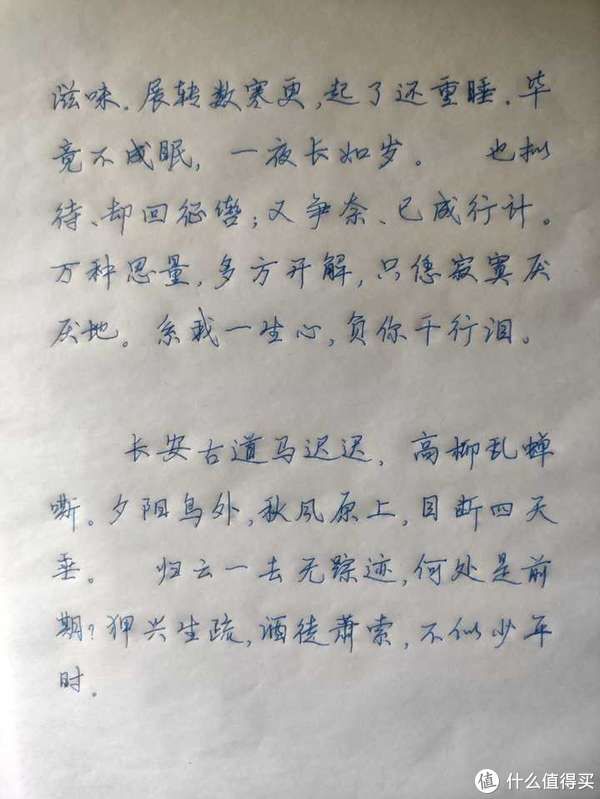 滋味。展转数寒更，起了还重睡。毕
竟不成眠，一夜长如岁。　也拟
待、却回征辔；又争奈、已成行计。
万种思量，多方开解，只恁寂寞厌
厌地。系我一生心，负你千行泪。
长安古道马迟迟，高柳乱蝉
嘶。夕阳鸟外，秋风原上，目断四天
垂。　归云一去无踪迹，何处是前
期？狎兴生疏，酒徒萧索，不似少年
时。
值 什么值得买